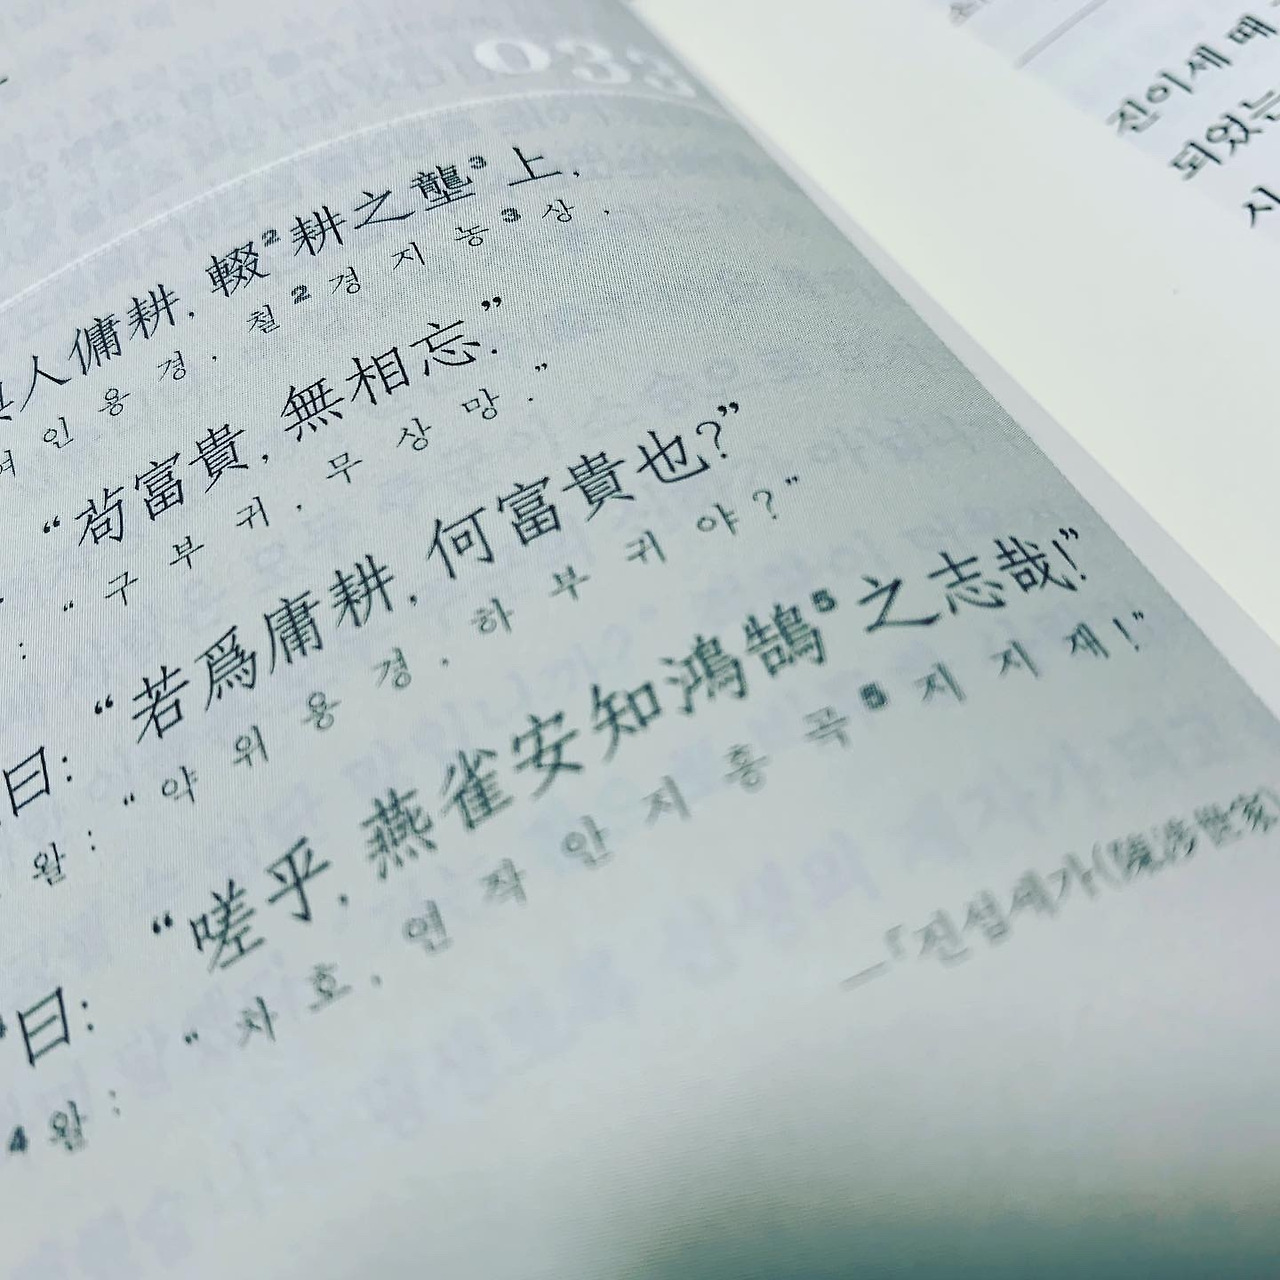 033
人傭耕, 輟2 耕之壟3 上,
여 인 용 경, 철2 경 지 농3 상,
“苟富貴, 無相忘.”
“구 부 귀, 무 상 망.”
曰: “若爲庸耕, 何富貴也?”
왈: “약 위 용 경, 하 부 귀 야?”
曰: “嗟乎, 燕雀安知鴻鵠5 之志哉!”
4 왈: “차 호, 연 작 안 지 홍 곡5 지 지 재!”
—「진섭세가(陳涉世家)
진이세 때
되었는
시